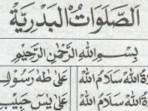 الصَّلَوَاتُ الْبَدْرِيَّةُ
بِسْمِ اللهِ الرَّحْمٰنِ الرَّحِيْمِ
اللهِ سَلَامُ اللهِ عَلَى طٰهَ رَسُوْلِ
اللهِ سَلَامُ اللهِ عَلَى يٰسٓ حَبِيْبِ